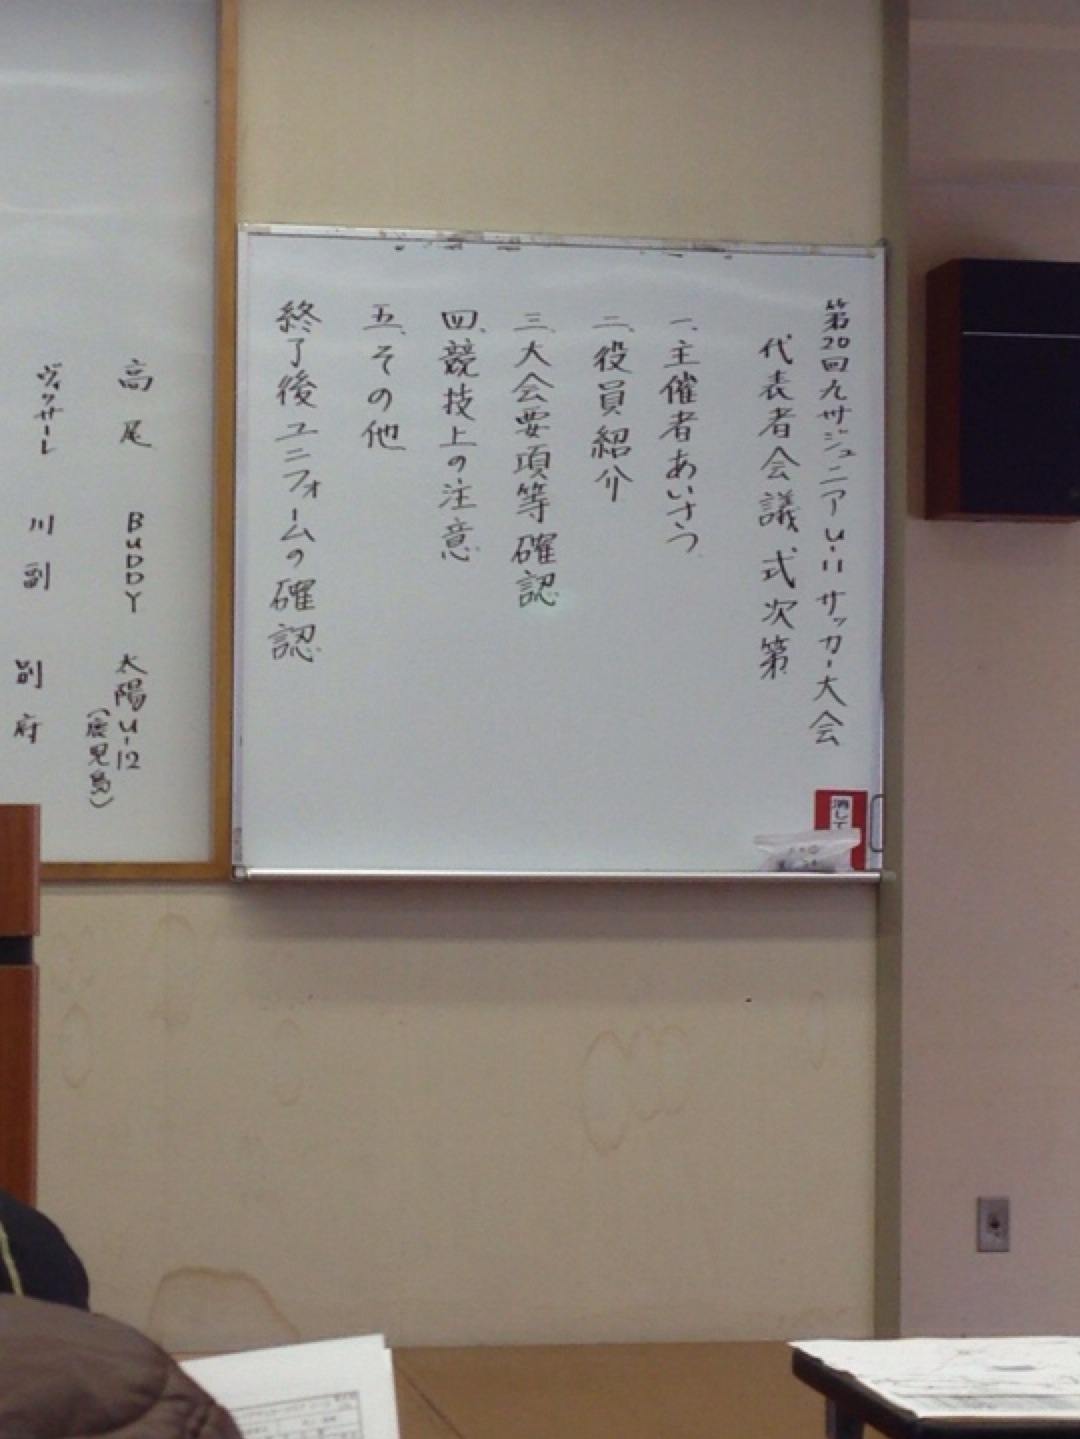 第20回九州ジュニアU-11サッカー大会
代表者会議 式次第
一、主催者あいさつ
二、役員紹介
三、大会要項等確認
四、競技上の注意
五、その他
終了後ユニフォームの確認
消して
高尾 BUDDY 太陽U-12
(鹿児島)
ヴィクサーレ 川副 別府